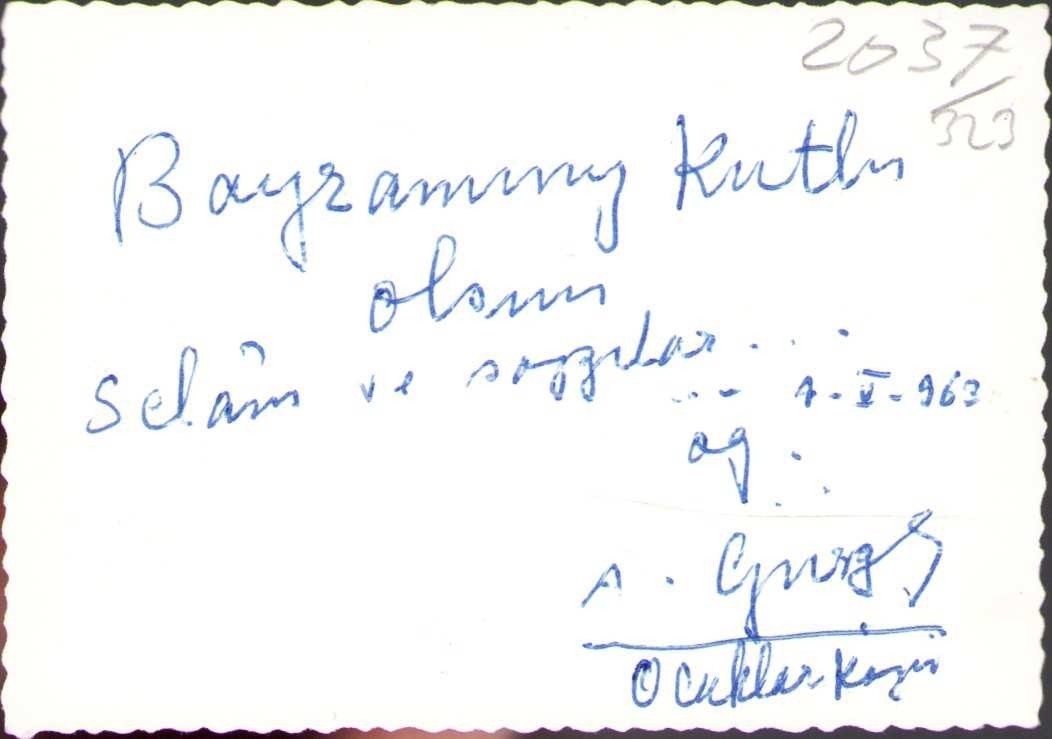 2037/323
Bayramınız Kutlu
olsun
Selâm ve saygılar...
1-V-963
A.
Ocaklar Köyü